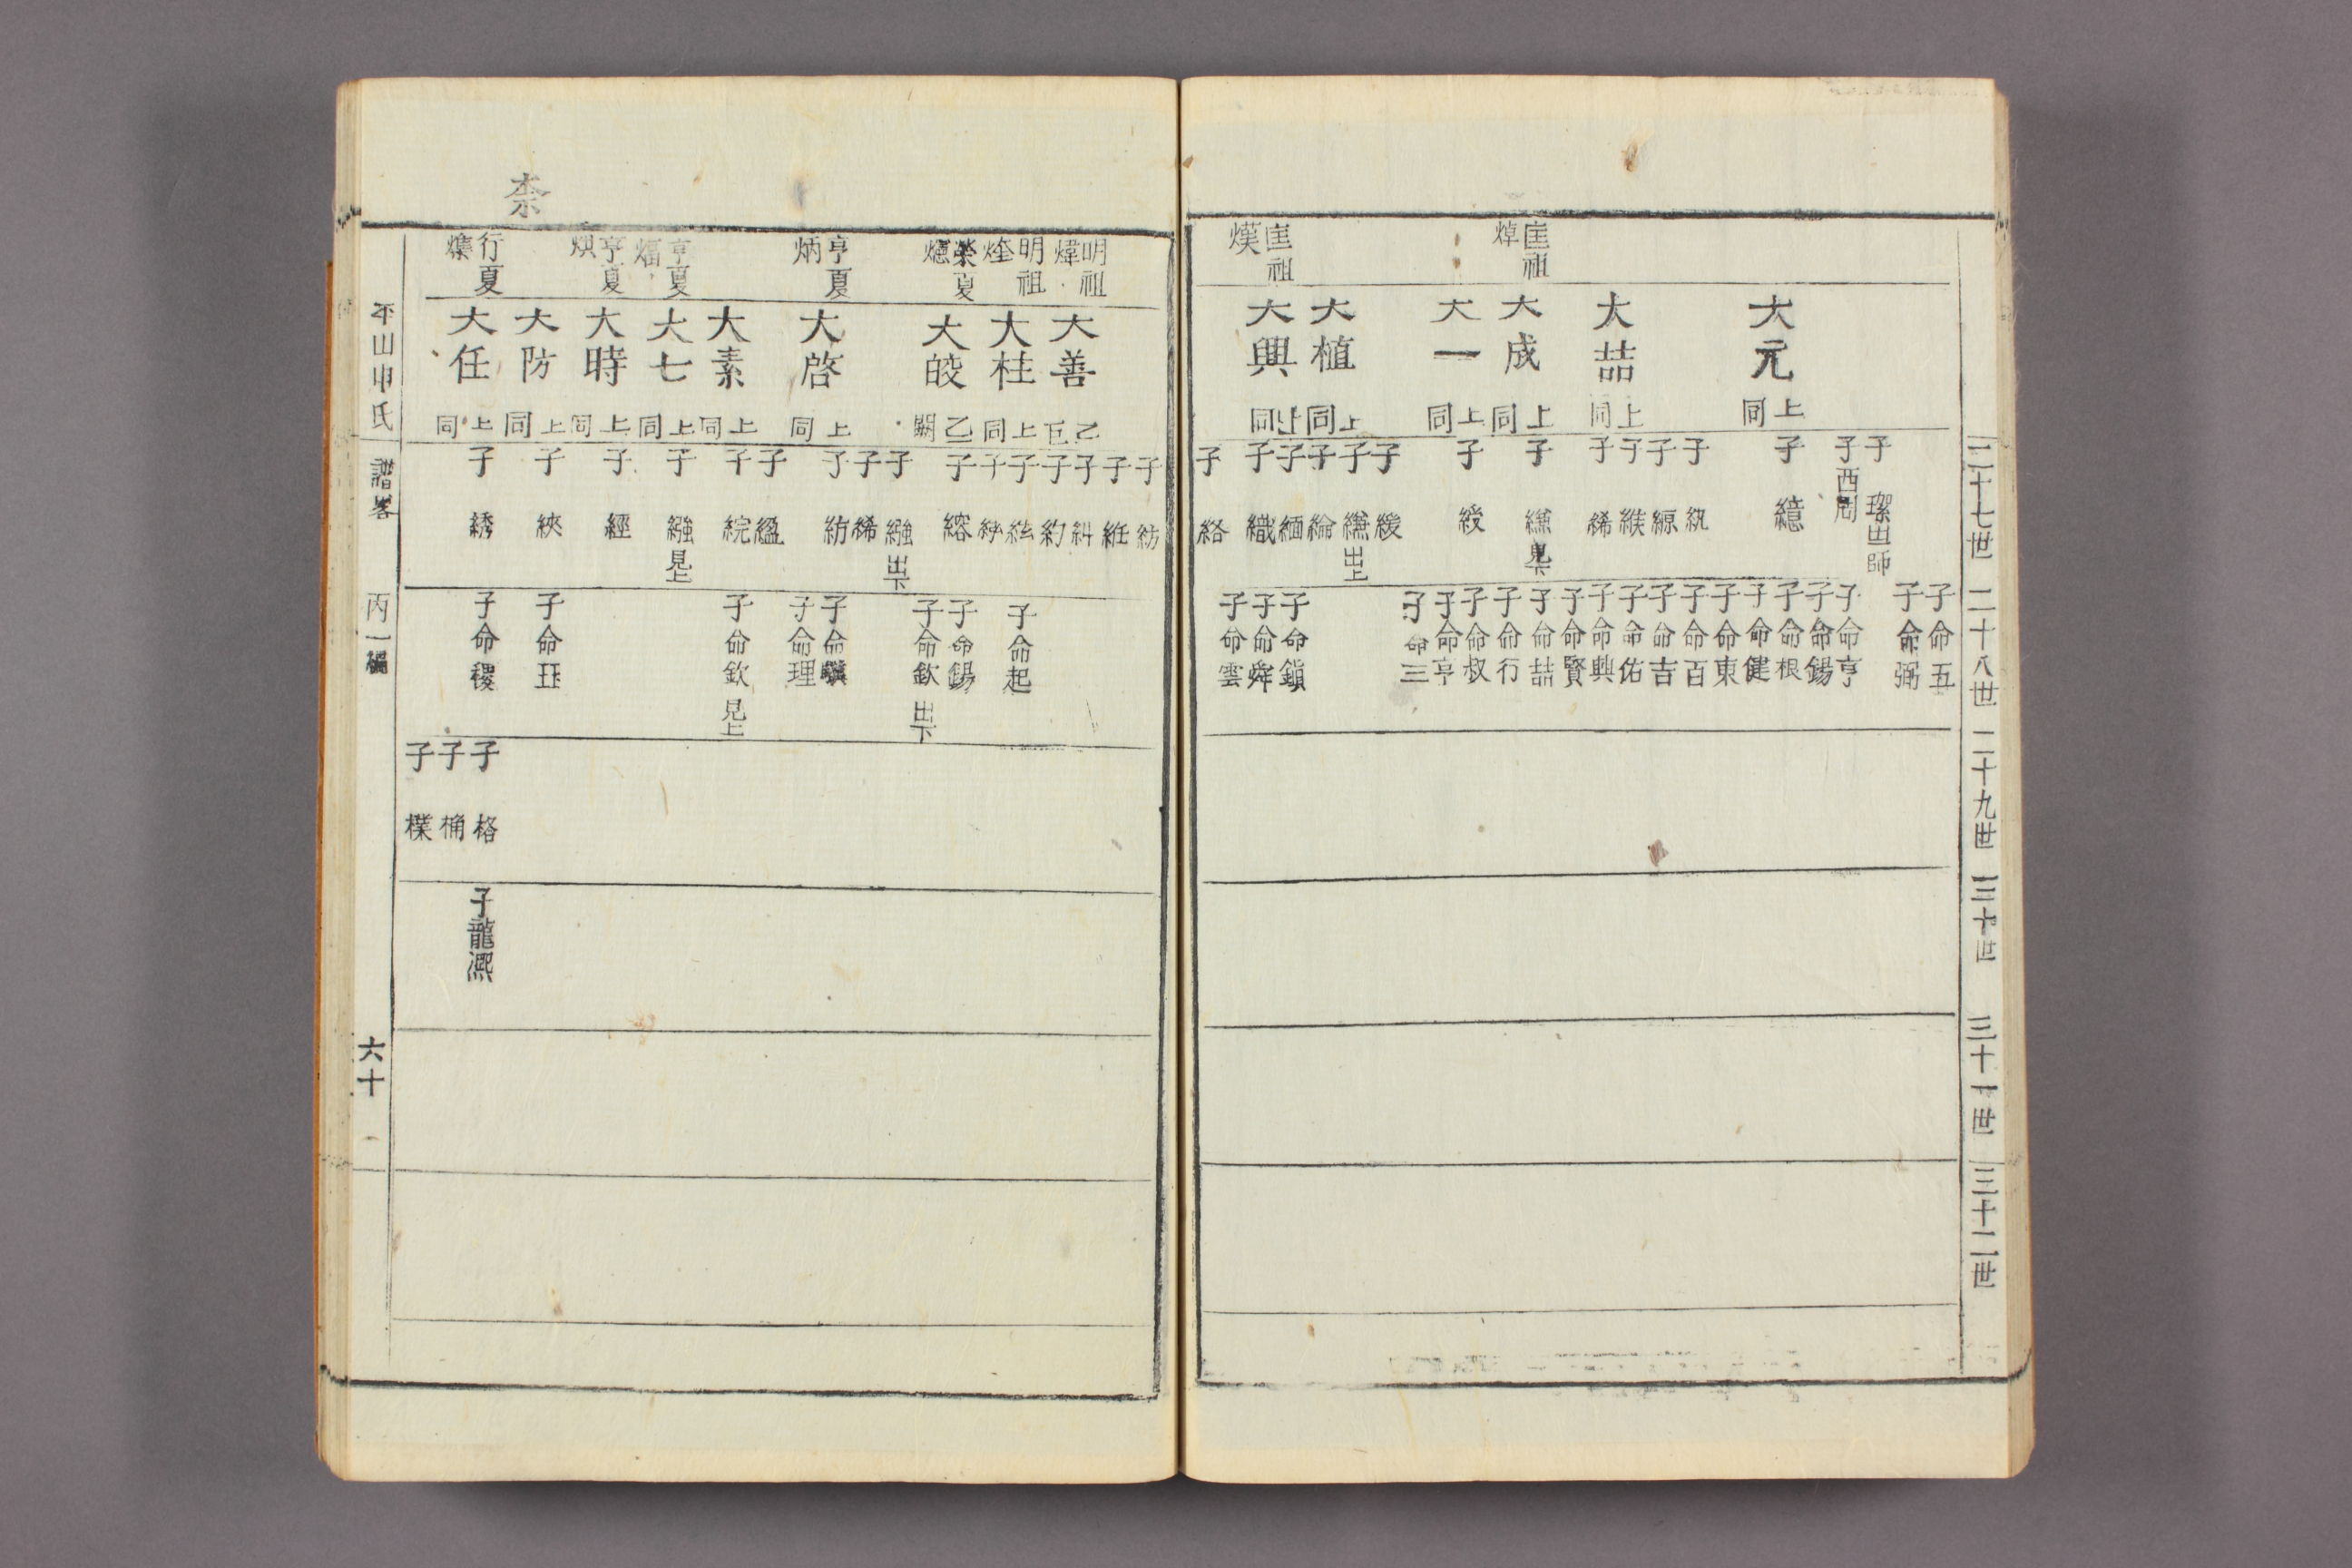 二十七世
二十八世
二十九世
三十世
三十一世
三十二世
匡祖
焯
匡祖
熯
大元
上同
大喆
上同
大成
上同
大一
上同
大植
上同
大興
上同
子
子西周
子 繶
子 紈
子 縓
子 緱
子 絺
子
子 綬
子 緩
子
出上
子 綸
子 緬
子 織
子 絡
子命五
子命弼
子命亨
子命錫
子命根
子命健
子命東
子命百
子命吉
子命佑
子命興
子命賢
子命喆
子命行
子命叔
子命亨
子命三
子命鎭
子命舜
子命雲
奈
明祖
煒
明祖
煃
榮夏
亨夏
炳
亨夏
煏
亨夏
行夏
大善
大桂
上同
大皎
大啓
上同
大素
上同
大七
上同
大時
上同
大防
上同
大任
上同
子 紡
子 紝
子 糾
子 約
子
子
子 縚
子 繈
出下
子 絺
子 紡
子 縕
子 綄
子 繈
見上
子 經
子 紻
子 綉
子命起
子命錫
子命欽
出下
子命
子命理
子命欽
見上
子命玨
子命稷
子 格
子 桷
子 檏
子龍凞
平山申氏
譜畧
丙一編
六十